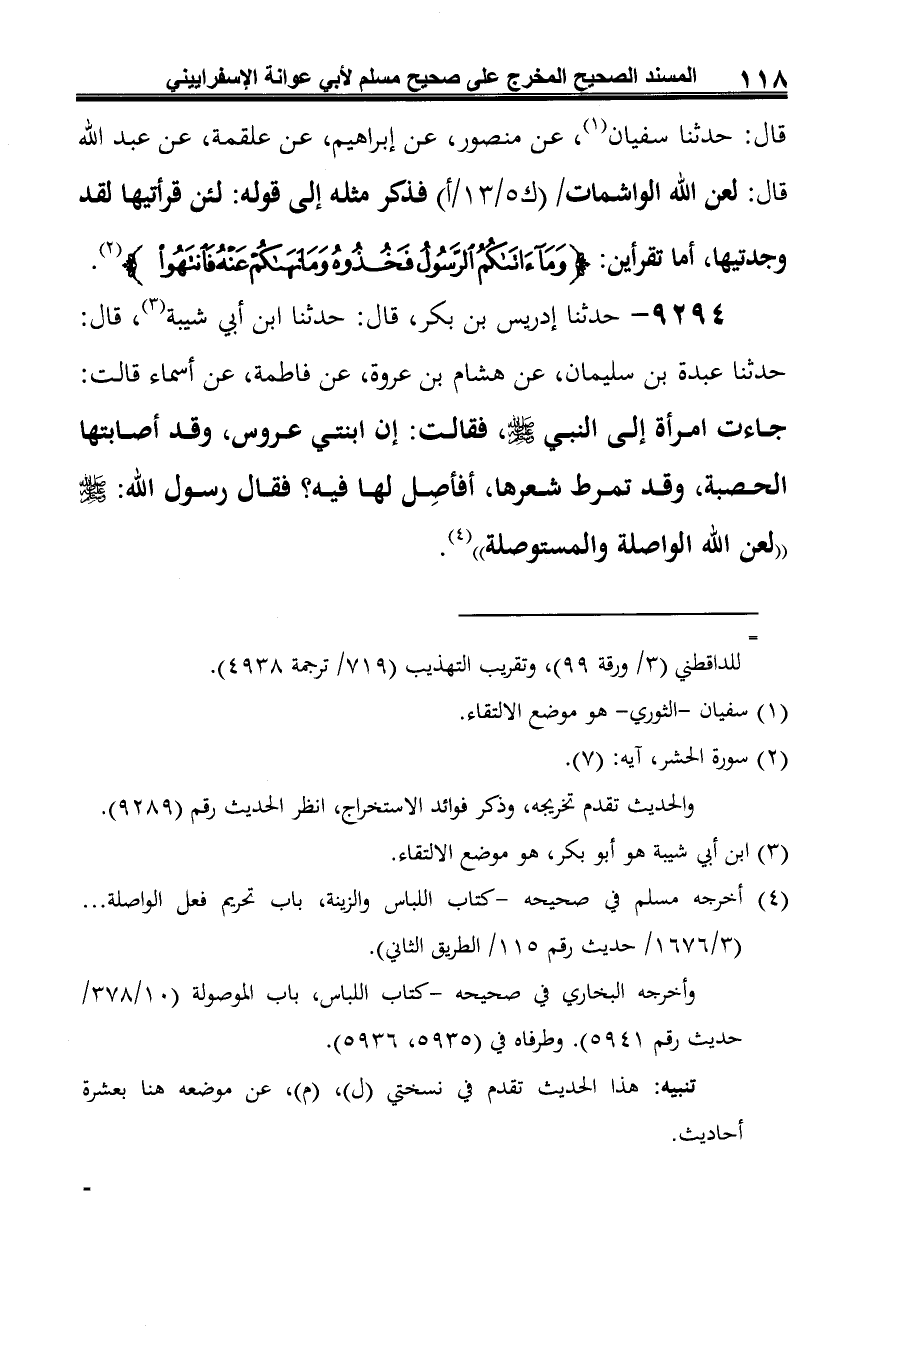 ١١٨ المسند الصحيح المخرج على صحيح مسلم لأبي عوانة الإسفراييني
قال: حدثنا سفيان(١)، عن منصور، عن إبراهيم، عن علقمة، عن عبد الله
قال: لعن الله الواشمات/ (ك٥/١٣/أ) فذكر مثله إلى قوله: لئن قرأتيها لقد
وجدتيها، أما تقرأين: ﴿وَمَآ ءَاتَىٰكُمُ ٱلرَّسُولُ فَخُذُوهُ وَمَا نَهَىٰكُمْ عَنْهُ فَٱنتَهُوا۟﴾(٢).
٩٢٩٤- حدثنا إدريس بن بكر، قال: حدثنا ابن أبي شيبة(٣)، قال:
حدثنا عبدة بن سليمان، عن هشام بن عروة، عن فاطمة، عن أسماء قالت:
جاءت امرأة إلى النبي ﷺ، فقالت: إن ابنتي عروس، وقد أصابتها
الحصبة، وقد تمرط شعرها، أفأصِل لها فيه؟ فقال رسول الله: ﷺ
((لعن الله الواصلة والمستوصلة))(٤).
=
للداقطني (٣/ ورقة ٩٩)، وتقريب التهذيب (٧١٩/ ترجمة ٤٩٣٨).
(١) سفيان -الثوري- هو موضع الالتقاء.
(٢) سورة الحشر، آيه: (٧).
والحديث تقدم تخريجه، وذكر فوائد الاستخراج، انظر الحديث رقم (٩٢٨٩).
(٣) ابن أبي شيبة هو أبو بكر، هو موضع الالتقاء.
(٤) أخرجه مسلم في صحيحه -كتاب اللباس والزينة، باب تحريم فعل الواصلة...
(١٦٧٦/٣/ حديث رقم ١١٥/ الطريق الثاني).
وأخرجه البخاري في صحيحه -كتاب اللباس، باب الموصولة (٣٧٨/١٠/
حديث رقم ٥٩٤١). وطرفاه في (٥٩٣٥، ٥٩٣٦).
تنبيه: هذا الحديث تقدم في نسختي (ل)، (م)، عن موضعه هنا بعشرة
أحاديث.